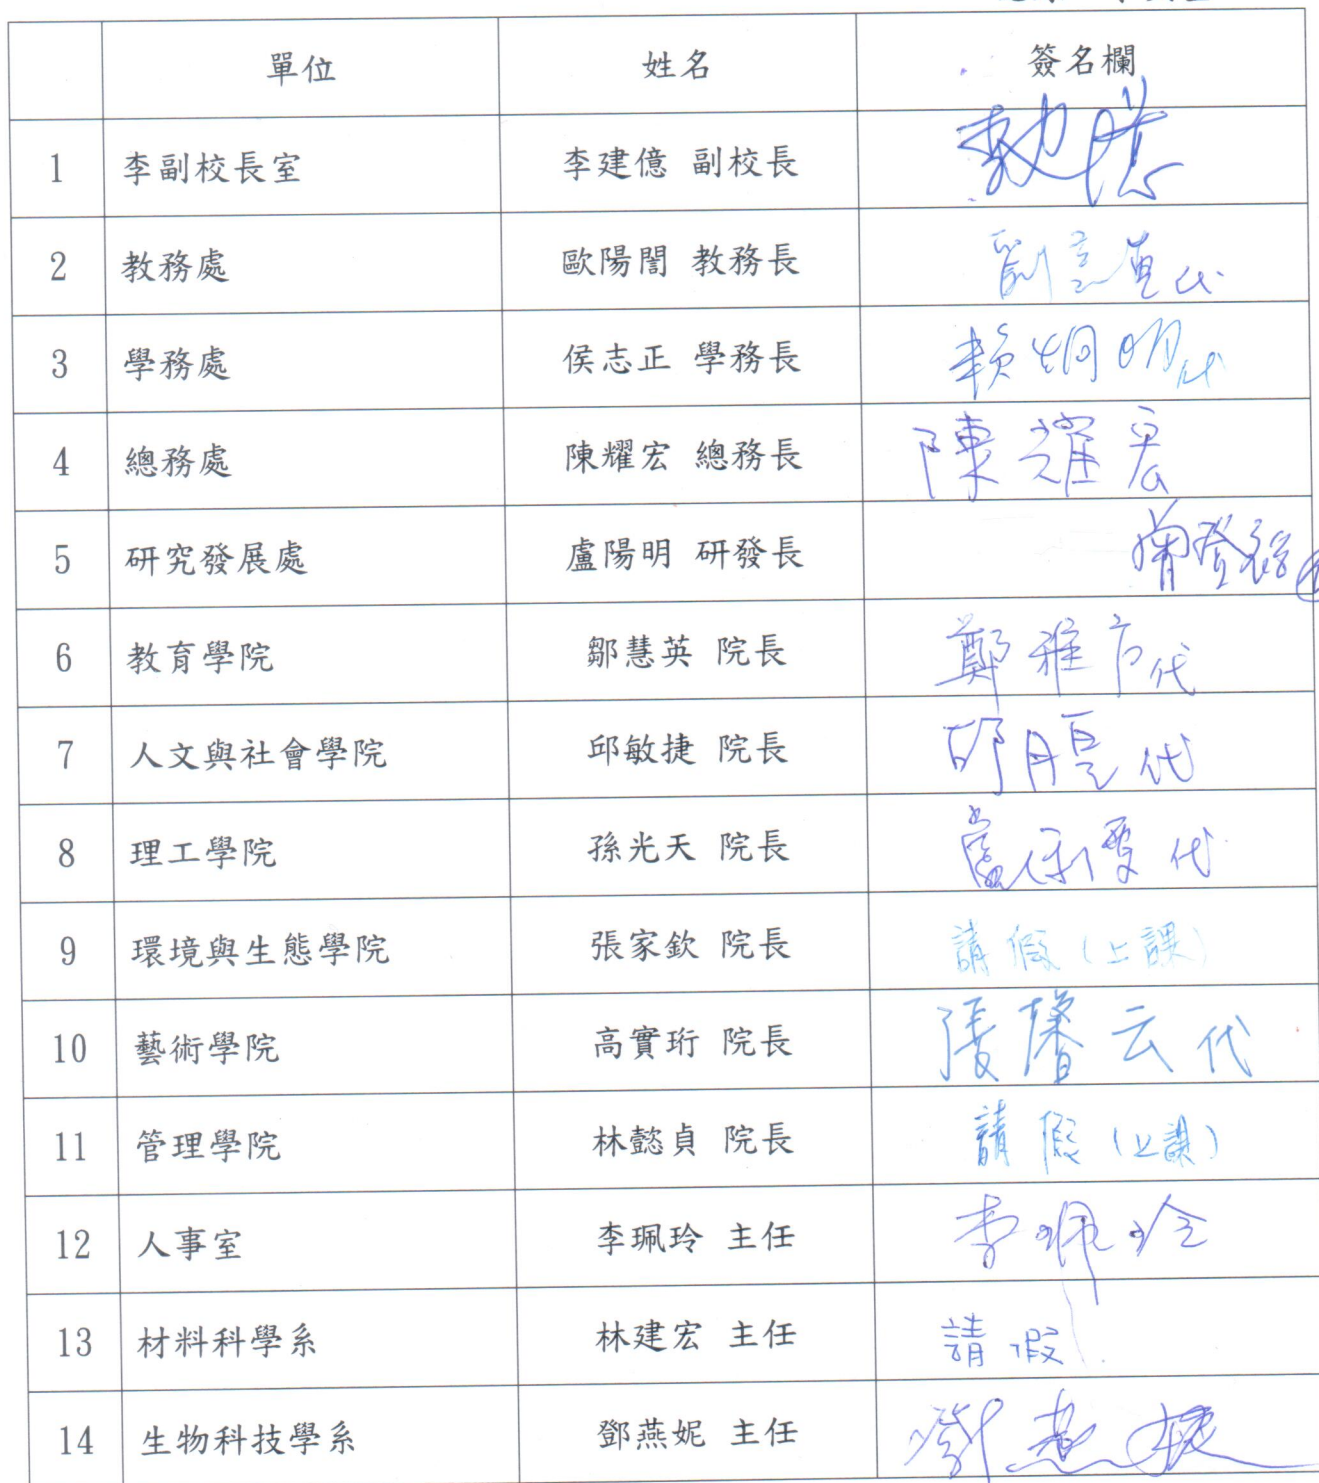 單位 姓名 簽名欄
1 李副校長室 李建億 副校長
2 教務處 歐陽誾 教務長 代
3 學務處 侯志正 學務長 賴炯明代
4 總務處 陳耀宏 總務長 陳耀宏
5 研究發展處 盧陽明 研發長 曾登裕
6 教育學院 鄒慧英 院長 鄭雅方代
7 人文與社會學院 邱敏捷 院長 代
8 理工學院 孫光天 院長 代
9 環境與生態學院 張家欽 院長 請假(上課)
10 藝術學院 高實珩 院長 張馨云代
11 管理學院 林懿貞 院長 請假(上課)
12 人事室 李珮玲 主任 李珮玲
13 材料科學系 林建宏 主任 請假
14 生物科技學系 鄧燕妮 主任